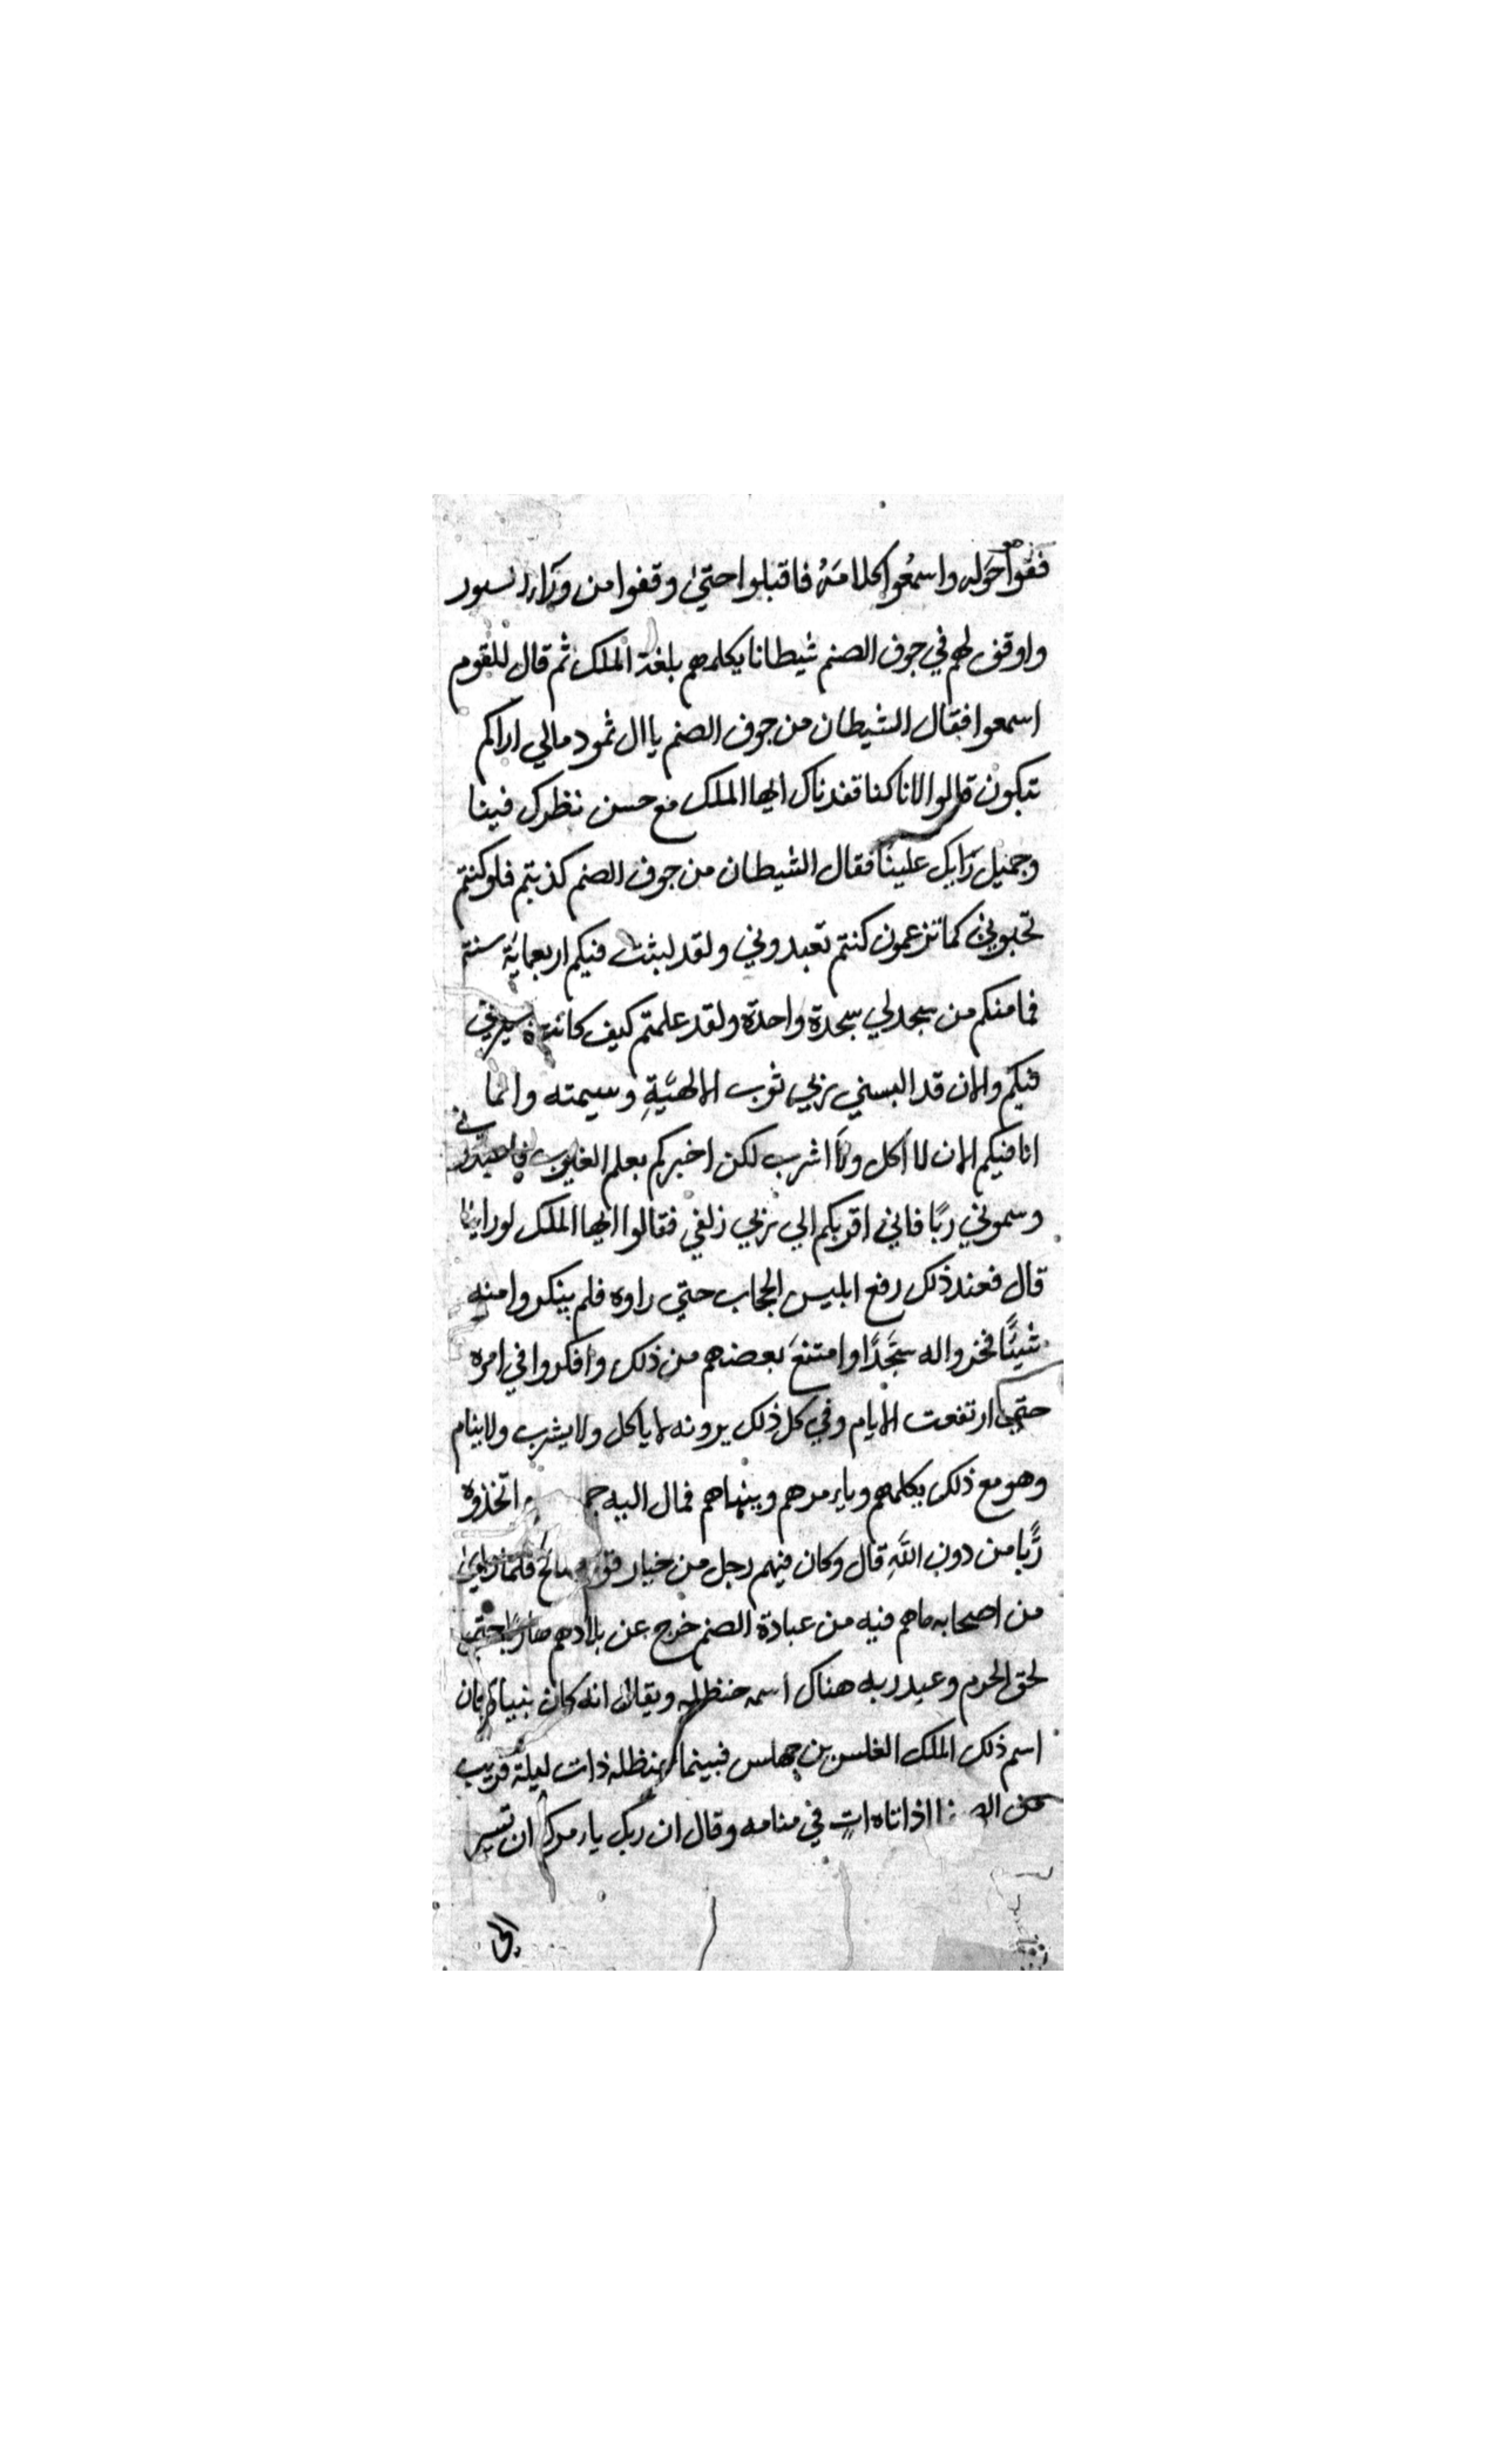 فقوا حوله واسمعوا كلامه فاقبلوا حتى وقفوا من وراء السور
واوقف لهم في جوف الصنم شيطانا يكلمهم بلغة الملك ثم قال للقوم
اسمعوا فقال الشيطان من جوف الصنم يا ال ثمود مالي اراكم
تبكون قالوا لانا كنا فقدناك ايها الملك مع حسن نظرك فينا
وجميل رَايك علينا فقال الشيطان من جوف الصنم كذبتم فلو كنتم
تحبوني كما تزعمون كنتم تعبدوني ولقد لبثت فيكم اربعماية سنة
فما منكم من سجد لي سجدة واحدة ولقد علمتم كيف كانت سيرتي
فيكم والان قد البسني ربي ثوب الالهيَّةِ وسيمته والها
انا فيكم الان لا آكل ولا اشرب لكن اخبركم بعلم الغيوب فاعبدوني
وسموني ربًا فاني اقربكم الي ربي زلفي فقالوا ايها الملك لو راينا
قال فعند ذلك رفع ابليس الحجاب حتي راوه فلم ينكروا منه
شيئًا فخروا له سُجَّدًا وامتنعَ بعضهم من ذلك وافكروا في امره
حتى ارتفعت الايام وفي كل ذلك يرونه لا ياكل ولا يشرب ولا ينام
وهو مع ذلك يكلمهم ويامرهم وينهاهم فمال اليه اتخذوه
رًبا من دون اللَّهِ قال وكان فيهم رجل من خيار قوم صالح فلما راى
من اصحابه ماهم فيه من عبادة الصنم خرج عن بلادهم هاربًا حتى
لحق الحرم وعبد ربه هناك اسمه حنظله ويقال انه كان نبيا وكان
اسم ذلك الملك الغلس بن جهلس فبينما حنظله ذات ليلة قريب
من اذا اتاه اتٍ في منامه وقال ان ربك يامرك ان تسير
الى